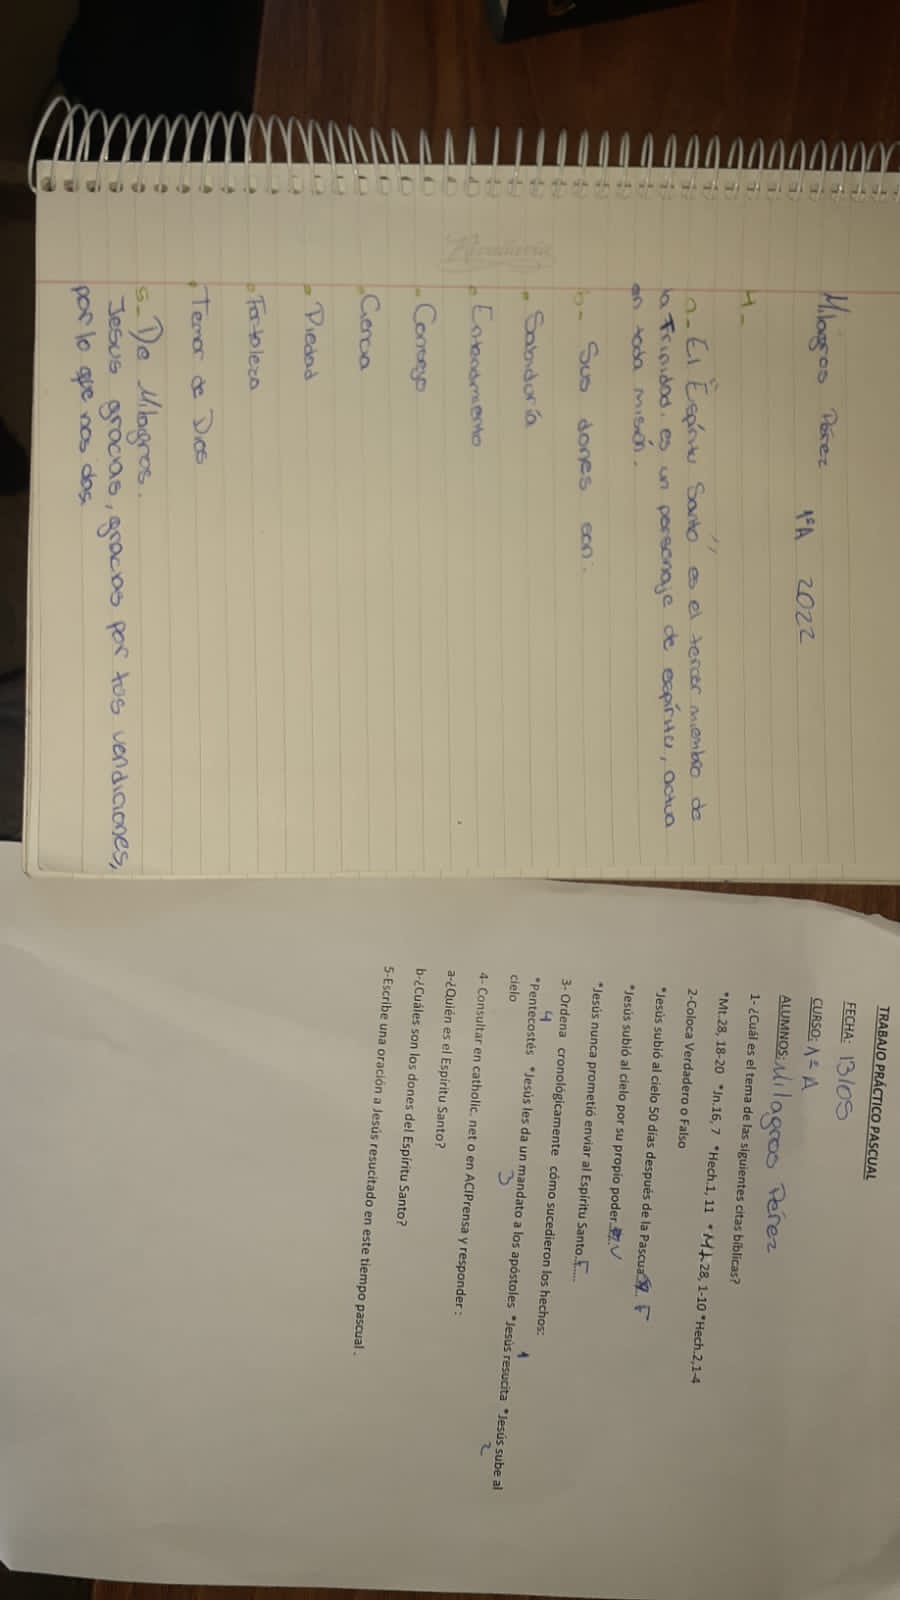 Milagros Pérez 1ºA 2022
4-
a- El "Espíritu Santo" es el tercer miembro de
la Trinidad, es un personaje de espíritu, actua
en toda misión.
b- Sus dones son:
• Sabiduría
• Entendimiento
• Consejo
• Ciencia
• Piedad
• Fortaleza
• Temor de Dios
5- De Milagros.
Jesus gracias, gracias por tus vendiciones,
por lo que nos das.
TRABAJO PRÁCTICO PASCUAL
FECHA: 13/05
CURSO: 1º A
ALUMNOS: Milagros Pérez
1- ¿Cuál es el tema de las siguientes citas bíblicas?
*Mt.28, 18-20 *Jn.16, 7 *Hech.1, 11 *Mt 28, 1-10 *Hech.2,1-4
2-Coloca Verdadero o Falso
*Jesús subió al cielo 50 días después de la Pascua F
*Jesús subió al cielo por su propio poder V
*Jesús nunca prometió enviar al Espíritu Santo. F
3- Ordena cronológicamente cómo sucedieron los hechos:
4 1
*Pentecostés *Jesús les da un mandato a los apóstoles *Jesús resucita *Jesús sube al
cielo 3 2
4- Consultar en catholic. net o en ACIPrensa y responder :
a-¿Quién es el Espíritu Santo?
b-¿Cuáles son los dones del Espíritu Santo?
5-Escribe una oración a Jesús resucitado en este tiempo pascual .